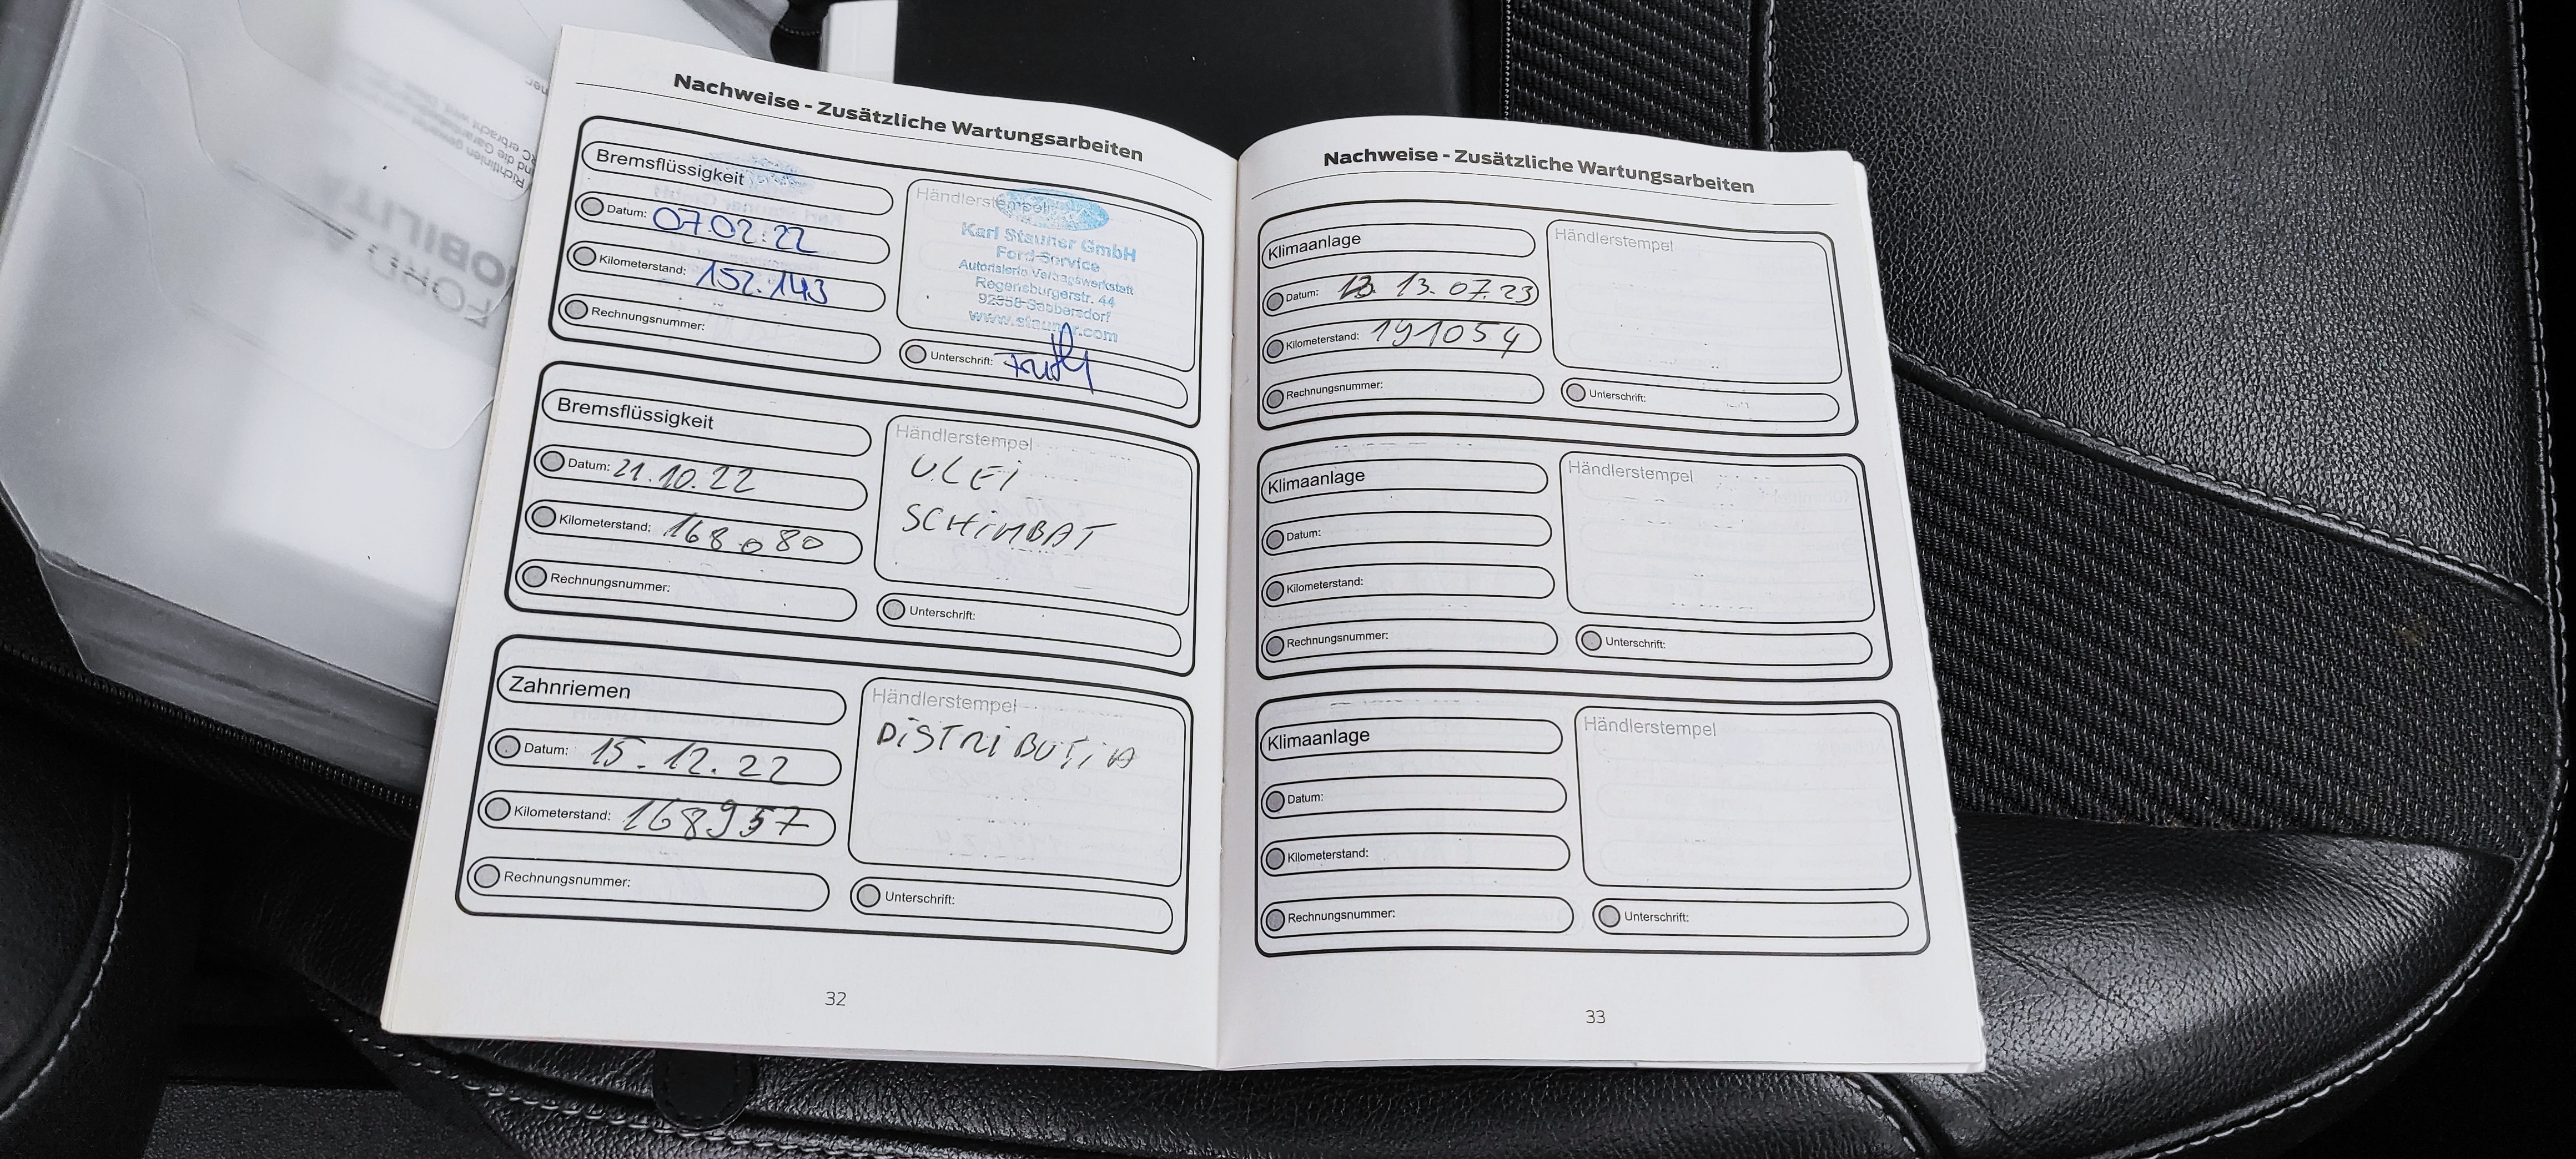 Nachweise - Zusätzliche Wartungsarbeiten
Bremsflüssigkeit
Datum: 07.02.22
Kilometerstand: 152.143
Rechnungsnummer:
Händlerstempel
Karl Stauner GmbH
Ford-Service
Autorisierte Vertragswerkstatt
Regensburgerstr. 44
92358 Seubersdorf
www.stauner.com
Unterschrift:
Bremsflüssigkeit
Datum: 21.10.22
Kilometerstand: 168080
Rechnungsnummer:
Händlerstempel
ULEI
SCHIMBAT
Unterschrift:
Zahnriemen
Datum: 15.12.22
Kilometerstand: 168957
Rechnungsnummer:
Händlerstempel
DISTRIBUȚIA
Unterschrift:
32
Nachweise - Zusätzliche Wartungsarbeiten
Klimaanlage
Datum: 13.07.23
Kilometerstand: 191054
Rechnungsnummer:
Händlerstempel
Unterschrift:
Klimaanlage
Datum:
Kilometerstand:
Rechnungsnummer:
Händlerstempel
Unterschrift:
Klimaanlage
Datum:
Kilometerstand:
Rechnungsnummer:
Händlerstempel
Unterschrift:
33